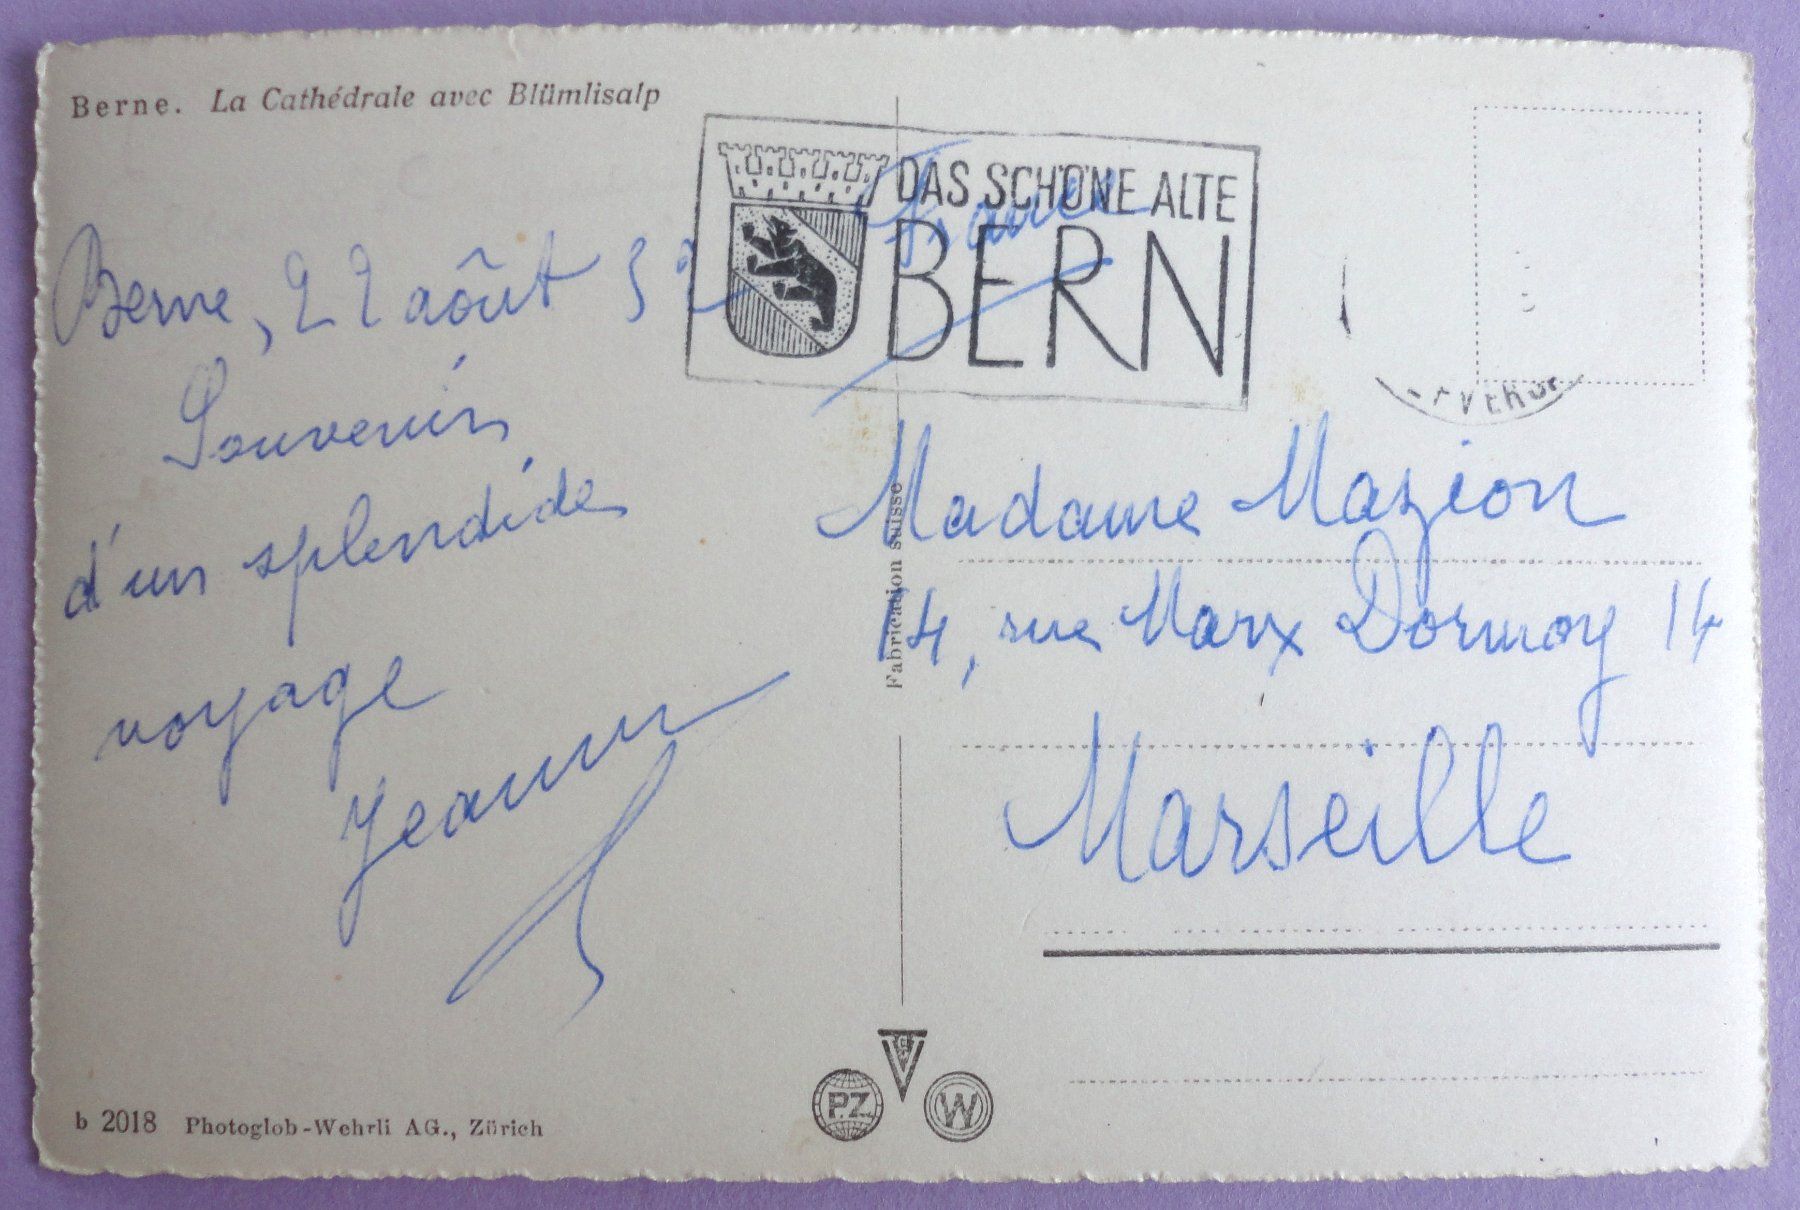 Berne. La Cathédrale avec Blümlisalp
Berne, 22 août 52
Souvenir
d'un splendide
voyage
Jeanne
DAS SCHÖNE ALTE
BERN
France
Madame Mazion
14, rue Marx Dormoy 14
Marseille
Fabrication suisse
b 2018 Photoglob-Wehrli AG., Zürich
PZ
W